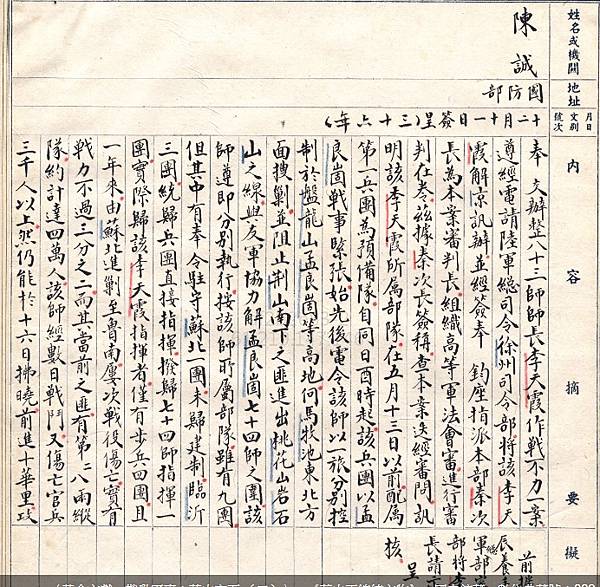 姓名或機關
地址
月日
文別
號次
內容摘要
擬
陳誠
國防部
十二月十一日簽呈(三十六年)
奉 交辦整八十三師師長李天霞作戰不力一案
遵經電請陸軍總司令徐州司令部將該李天
霞解京訊辦並經簽奉 鈞座指派本部秦次
長為本案審判長組織高等軍法會審進行審
判在卷茲據秦次長簽稱查本案迭經審問訊
明該李天霞所屬部隊在五月十三日以前配屬
第一兵團為預備隊自同日酉時起該兵團以孟
良崮戰事緊張始先後電令該師以一旅分別控
制於盤龍山孟良崮等高地何馬牧池東北方
面搜剿並阻止荆山南下之匪進出桃花山岩石
山之線與友軍協力解孟良崮七十四師之圍該
師遵即分別執行按該師所屬部隊雖有九團
但其中有奉令駐守蘇北一團未歸建制臨沂
三團統歸兵團直接指揮撥歸七十四師指揮一
團實際歸該李天霞指揮者僅有步兵四團且
一年來由蘇北進剿至魯南屢次戰役傷亡實有
戰力不過三分之二而其當前之匪有第二八兩縱
隊約計達四萬人該師經數日戰鬥又傷亡官兵
三千人以上然仍能於十六日拂曉前進十華里攻
前據
辰養
軍總部
部將李
長請
核
呈